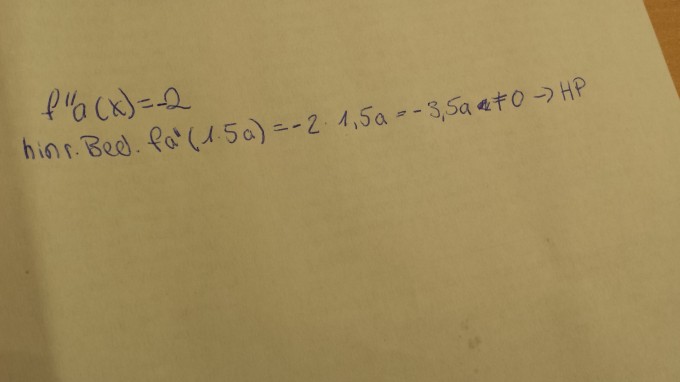 f''a(x)=-2
hinr. Bed. fa''(1.5a) = -2 · 1,5a = -3,5a ≠ 0 → HP